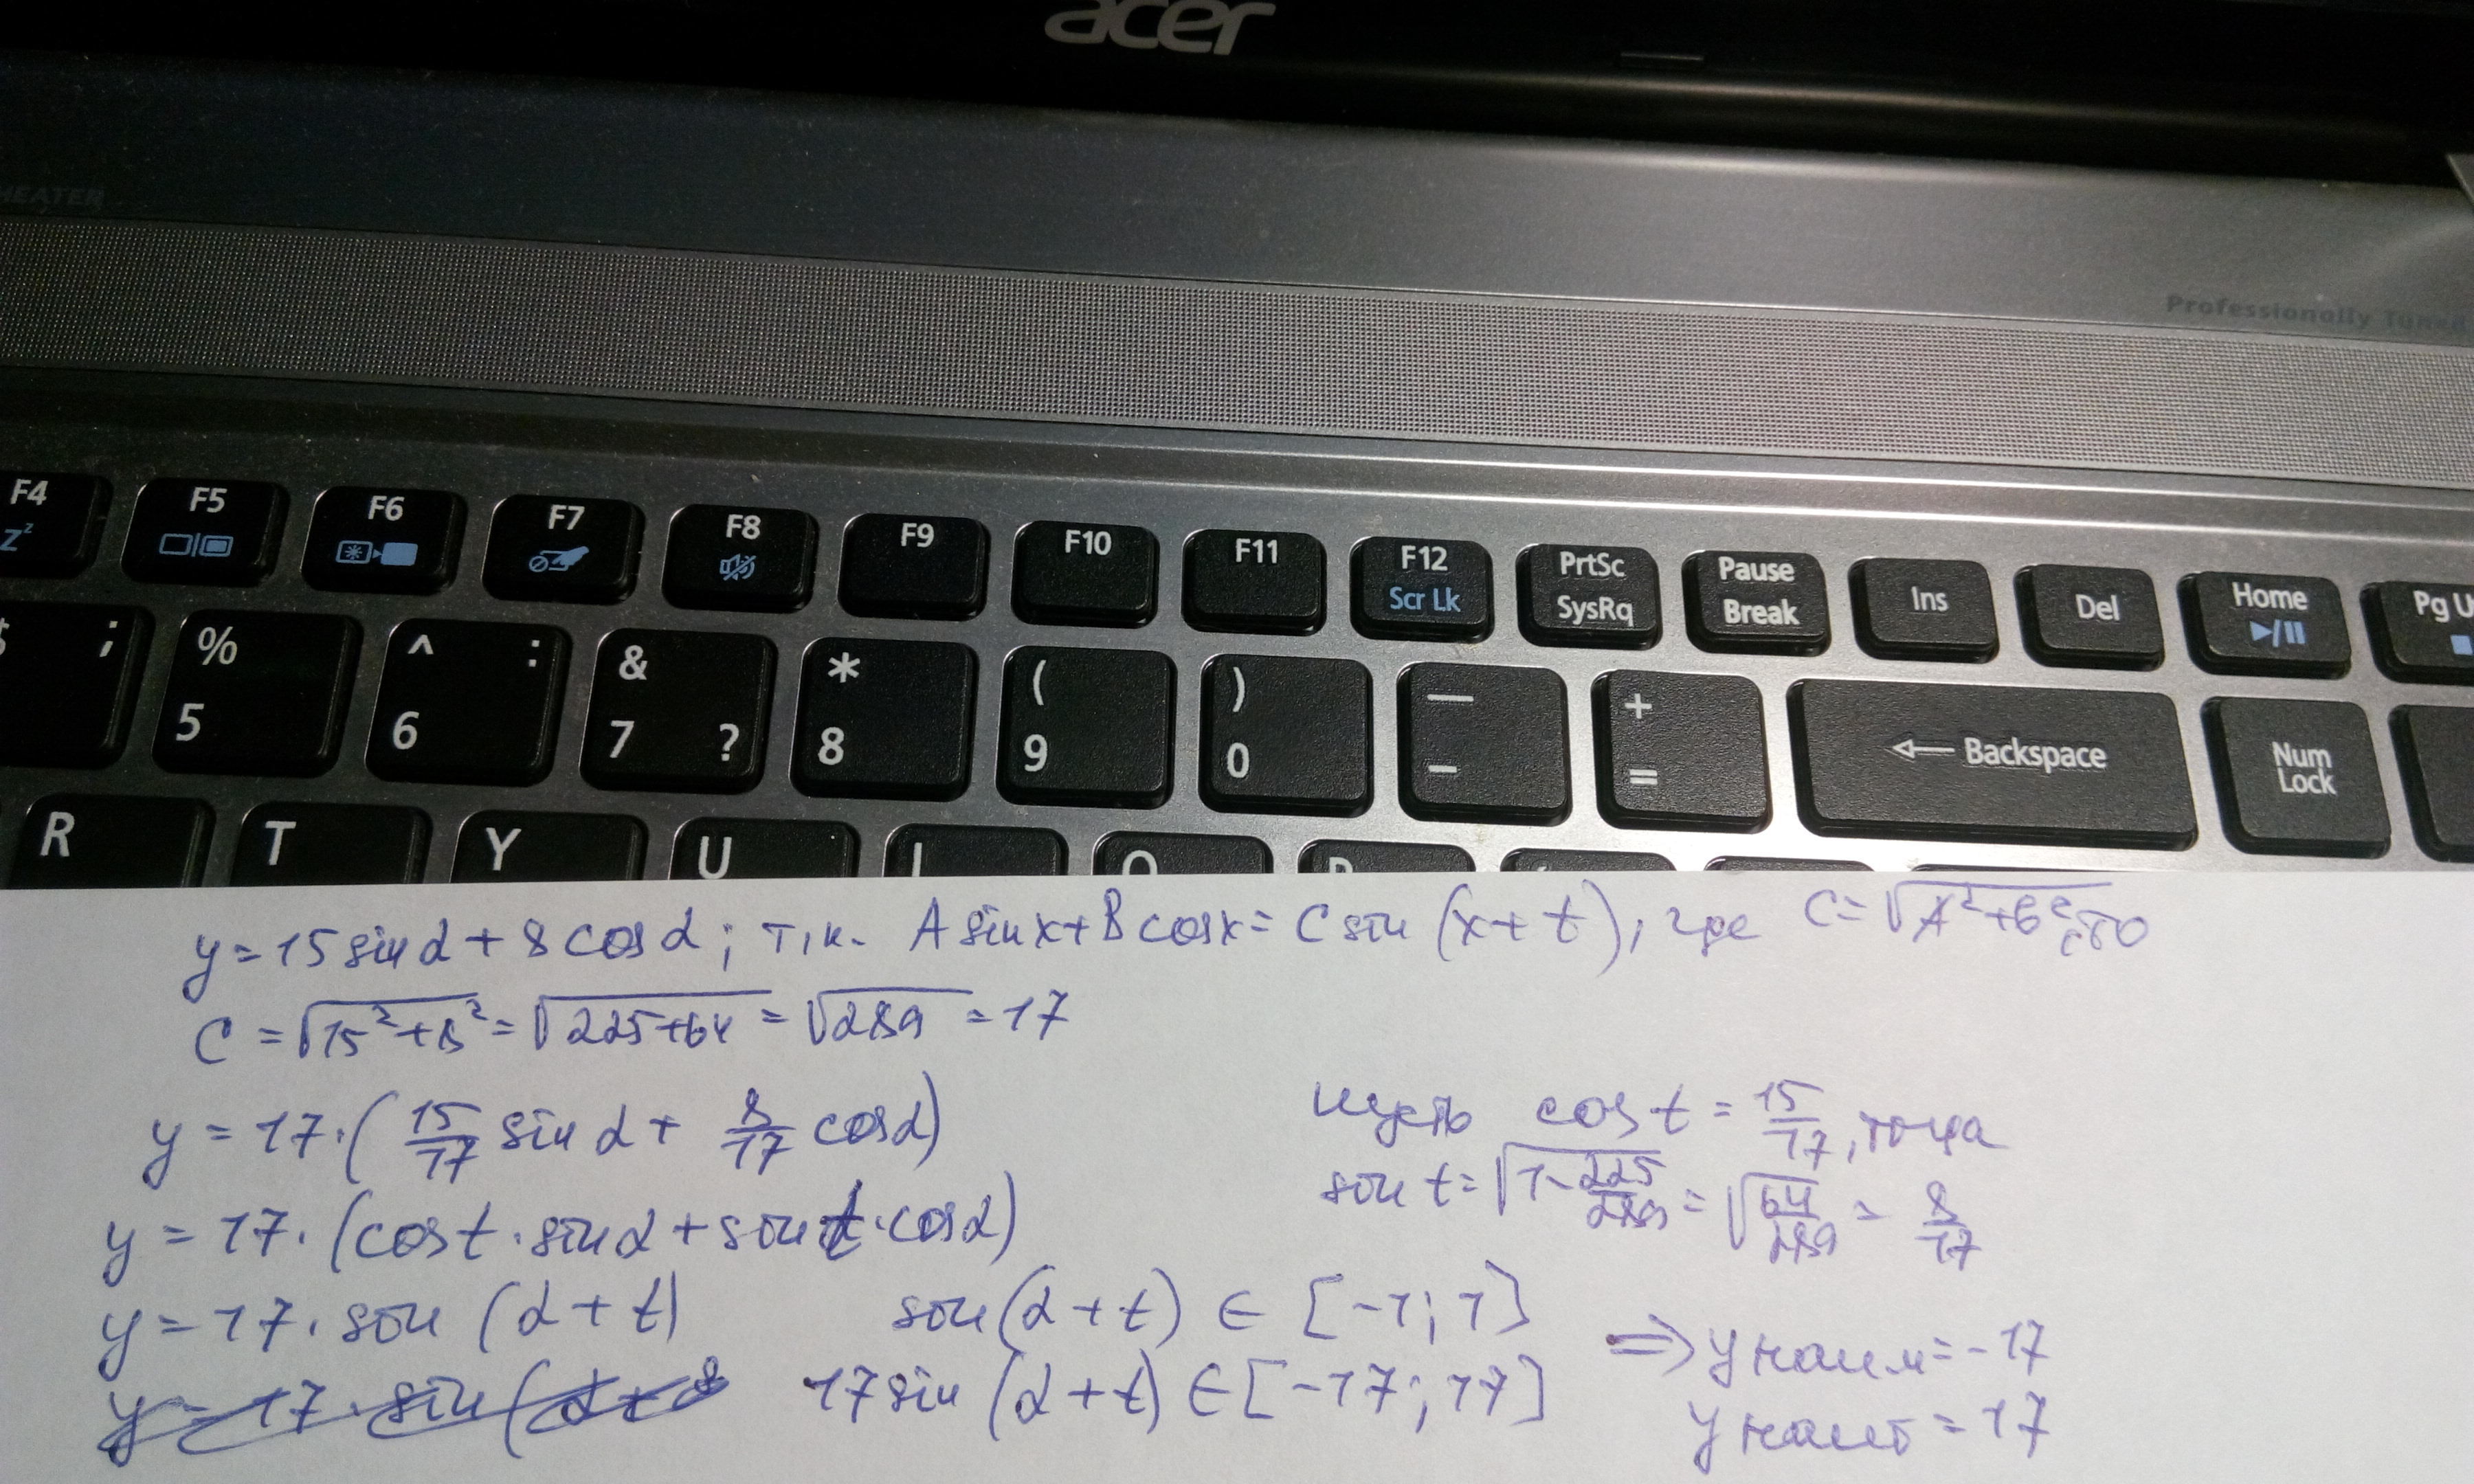 acer
HEATER
Professionally Tuned
F4 F5 F6 F7 F8 F9 F10 F11 F12 PrtSc Pause Ins Del Home Pg U
Zz Scr Lk SysRq Break ▶/II
$ ; % ^ : & * ( ) — +
5 6 7 ? 8 9 0 - = ← Backspace Num Lock
R T Y U I O P
y = 15 sin α + 8 cos α ; т.к. A sin x + B cos x = C sin (x + t), где C = √(A² + B²),
C = √(15² + 8²) = √(225 + 64) = √289 = 17
y = 17 · (15/17 sin α + 8/17 cos α) пусть cos t = 15/17, тогда
sin t = √(1 - 225/289) = √(64/289) = 8/17
y = 17 · (cos t · sin α + sin t · cos α)
y = 17 · sin (α + t) sin (α + t) ∈ [-1; 1]
y = 17 · sin (α + 17 sin (α + t) ∈ [-17; 17] ⇒ y наим = -17
y наиб = 17